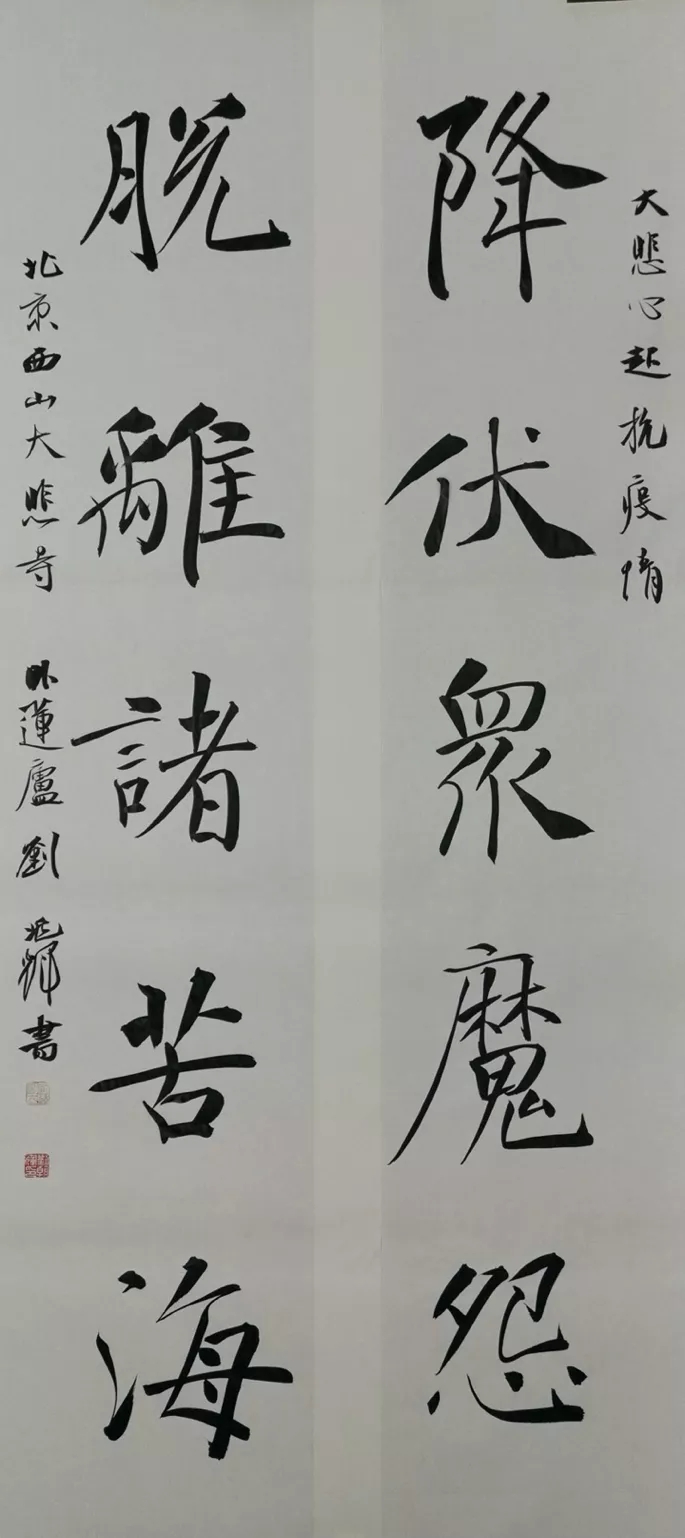 大悲心起抗疫情
降伏眾魔怨
脫離諸苦海
北京西山大悲寺 卧蓮廬劉兆輝書